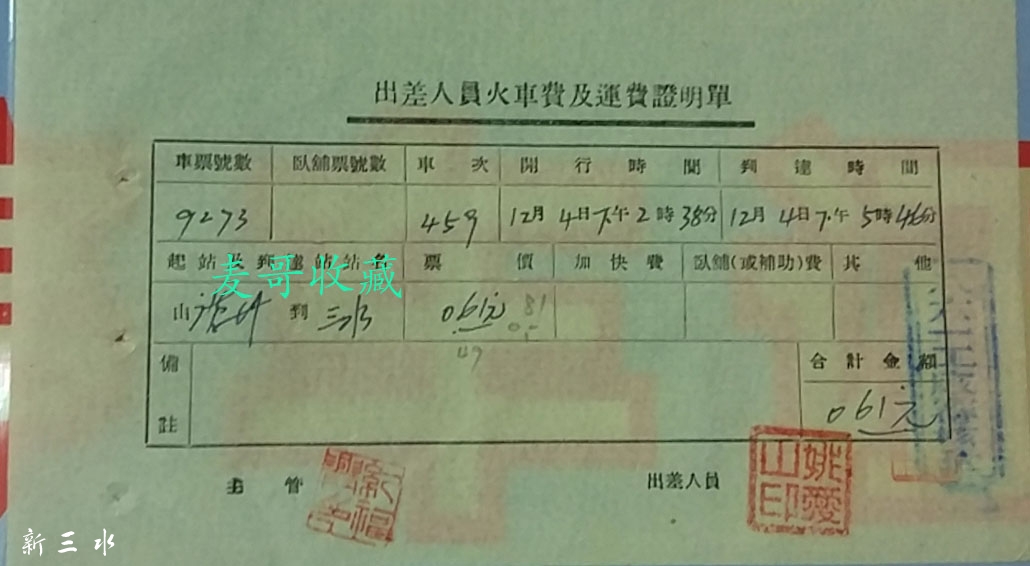 出差人員火車費及運費證明單
車票號數 臥舖票號數 車次 開行時間 到達時間
9273 459 12月4日下午2時38分 12月4日下午5時46分
起站及到達站站名 票價 加快費 臥舖(或補助)費 其他
麦哥收藏
由 到 三水 061元 81
49
備註 合計金額
061元
主管 出差人員
姚愛山印
新三水